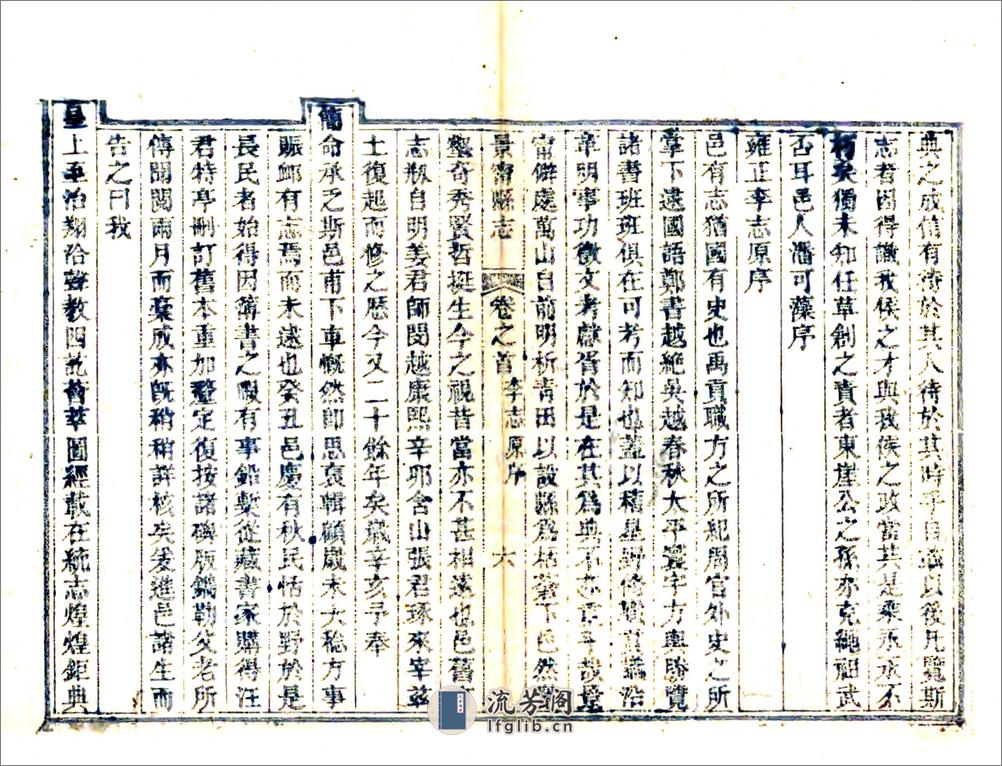 典之成信有待於其人待於其時乎自茲以後凡覽斯
志者因得讖我侯之才與我侯之政當其是乘永永不
朽矣獨未知任草創之責者東崖公之孫亦克繩祖武
否耳邑人潘可藻序
雍正李志原序
邑有志猶國有史也禹貢職方之所紀周官外史之所
掌下逮國語鄭書越絕吳越春秋太平寰宇方輿勝覽
諸書班班俱在可考而知也蓋以稽星野脩職貢驗沿
革明事功徵文考獻胥於是在其為典不亦重乎哉景
甯僻處萬山自前明析青田以設縣為栝蒼下邑然
景甯縣志 卷之首 李志原序 六
奇秀賢哲挺生今之視昔當亦不甚相遠也邑舊
志刱自明姜君師閔越康熙辛邜含山張君琢來宰茲
土復起而修之歷今又二十餘年矣歲辛亥予奉
簡命承乏斯邑甫下車慨然即思裒輯顧歲未大稔方事
賑䘏有志焉而未逮也癸丑邑慶有秋民恬於野於是
長民者始得因簿書之暇有事鉛槧從藏書家購得汪
君特亭刪訂舊本重加釐定復按諸碑版鐫勒父老所
傳聞閱兩月而稾成亦旣稍稍詳核矣爰進邑諸生而
告之曰我
皇上至治翔洽聲教四訖薈萃圖經載在統志煌煌鉅典
流芳閣
lfglib.cn